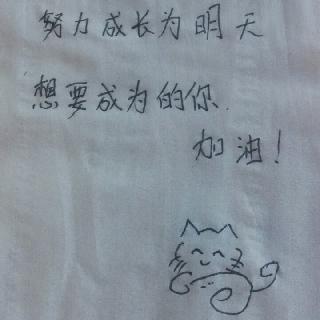 努力成长为明天
想要成为的你.
加油!